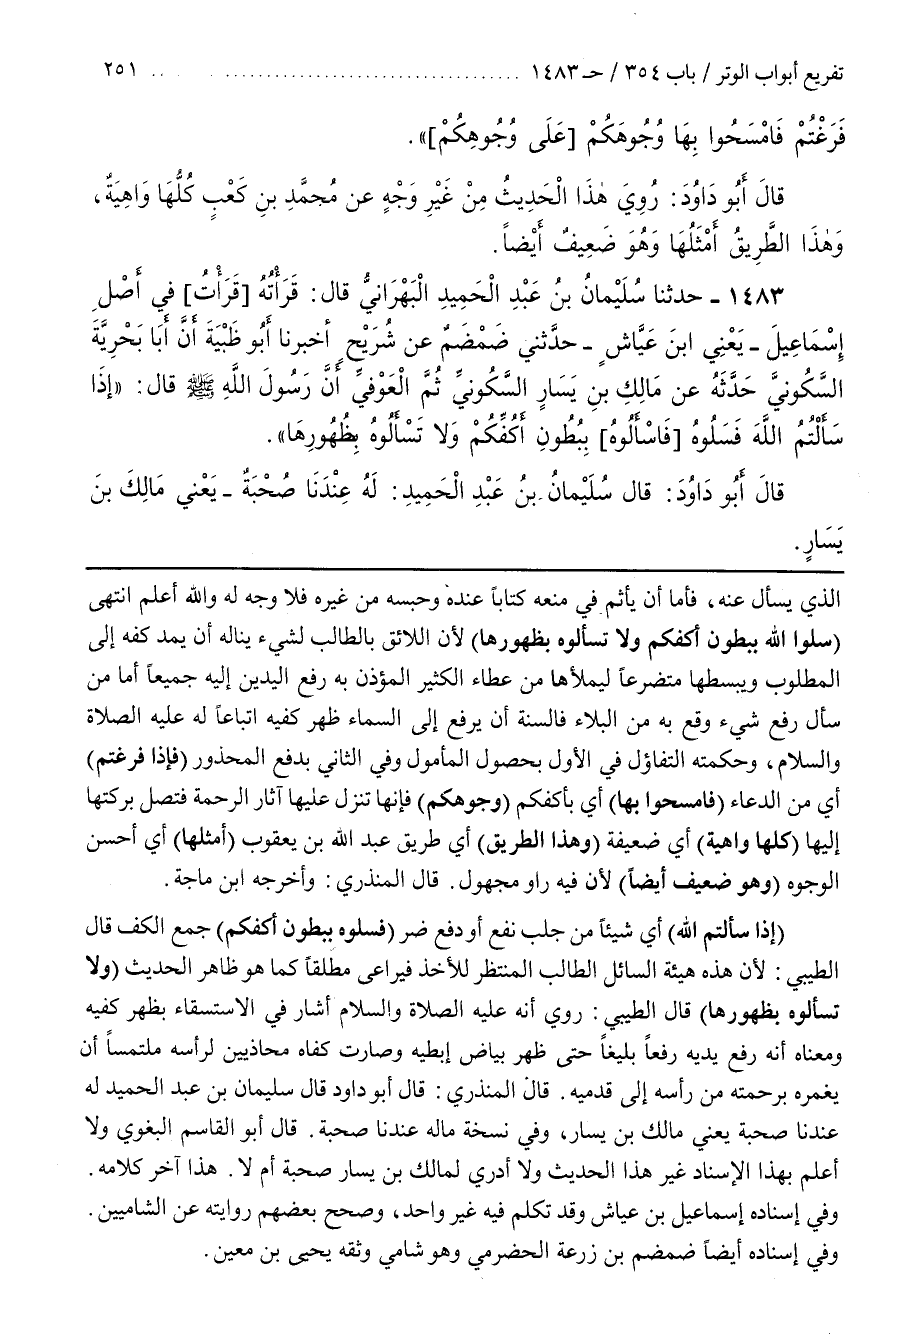 تفريع أبواب الوتر / باب ٣٥٤ / حـ ١٤٨٣ ........................................ ٢٥١
فَرَغْتُمْ فَامْسَحُوا بِهَا وُجُوهَكُمْ [عَلَى وُجُوهِكُمْ]».
قالَ أَبُو دَاوُدَ: رُوِيَ هٰذَا الْحَدِيثُ مِنْ غَيْرِ وَجْهٍ عن مُحمَّدِ بنِ كَعْبٍ كُلُّهَا وَاهِيَةٌ،
وَهٰذَا الطَّرِيقُ أَمْثَلُهَا وَهُوَ ضَعِيفٌ أَيْضاً.
١٤٨٣ ـ حدثنا سُلَيْمانُ بنُ عَبْدِ الْحَمِيدِ الْبَهْرَانيُّ قال: قَرَأْتُهُ [قَرَأْتُ] في أَصْلِ
إِسْمَاعِيلَ ـ يَعْنِي ابنَ عَيَّاشٍ ـ حدَّثني ضَمْضَمٌ عن شُرَيْحٍ أخبرنا أَبُو ظَبْيَةَ أَنَّ أَبَا بَحْرِيَّةَ
السَّكُونيَّ حَدَّثَهُ عن مَالِكِ بنِ يَسَارٍ السَّكُونيِّ ثُمَّ الْعَوْفيِّ أَنَّ رَسُولَ اللَّهِ ﷺ قال: «إِذَا
سَأَلْتُمُ اللَّهَ فَسَلُوهُ [فَاسْأَلُوهُ] بِبُطُونِ أَكُفِّكُمْ وَلا تَسْأَلُوهُ بِظُهُورِهَا».
قالَ أَبُو دَاوُدَ: قال سُلَيْمانُ بنُ عَبْدِ الْحَمِيدِ: لَهُ عِنْدَنَا صُحْبَةٌ ـ يَعْني مَالِكَ بنَ
يَسَارٍ.
الذي يسأل عنه، فأما أن يأثم في منعه كتاباً عنده وحبسه من غيره فلا وجه له والله أعلم انتهى
(سلوا الله ببطون أكفكم ولا تسألوه بظهورها) لأن اللائق بالطالب لشيء يناله أن يمد كفه إلى
المطلوب ويبسطها متضرعاً ليملأها من عطاء الكثير المؤذن به رفع اليدين إليه جميعاً أما من
سأل رفع شيء وقع به من البلاء فالسنة أن يرفع إلى السماء ظهر كفيه اتباعاً له عليه الصلاة
والسلام، وحكمته التفاؤل في الأول بحصول المأمول وفي الثاني بدفع المحذور (فإذا فرغتم)
أي من الدعاء (فامسحوا بها) أي بأكفكم (وجوهكم) فإنها تنزل عليها آثار الرحمة فتصل بركتها
إليها (كلها واهية) أي ضعيفة (وهذا الطريق) أي طريق عبد الله بن يعقوب (أمثلها) أي أحسن
الوجوه (وهو ضعيف أيضاً) لأن فيه راو مجهول. قال المنذري: وأخرجه ابن ماجة.
(إذا سألتم الله) أي شيئاً من جلب نفع أو دفع ضر (فسلوه ببطون أكفكم) جمع الكف قال
الطيبي: لأن هذه هيئة السائل الطالب المنتظر للأخذ فيراعى مطلقاً كما هو ظاهر الحديث (ولا
تسألوه بظهورها) قال الطيبي: روي أنه عليه الصلاة والسلام أشار في الاستسقاء بظهر كفيه
ومعناه أنه رفع يديه رفعاً بليغاً حتى ظهر بياض إبطيه وصارت كفاه محاذيين لرأسه ملتمساً أن
يغمره برحمته من رأسه إلى قدميه. قال المنذري: قال أبو داود قال سليمان بن عبد الحميد له
عندنا صحبة يعني مالك بن يسار، وفي نسخة ماله عندنا صحبة. قال أبو القاسم البغوي ولا
أعلم بهذا الإسناد غير هذا الحديث ولا أدري لمالك بن يسار صحبة أم لا. هذا آخر كلامه.
وفي إسناده إسماعيل بن عياش وقد تكلم فيه غير واحد، وصحح بعضهم روايته عن الشاميين.
وفي إسناده أيضاً ضمضم بن زرعة الحضرمي وهو شامي وثقه يحيى بن معين.